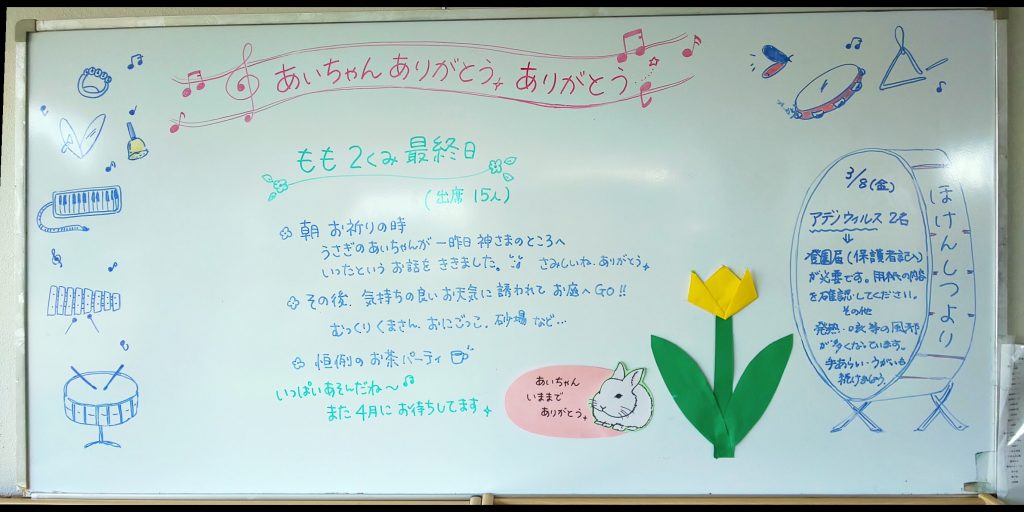 あいちゃん ありがとう ありがとう
もも 2くみ 最終日
(出席 15人)
朝 お祈りの時
うさぎのあいちゃんが 一昨日 神さまのところへ
いったという お話を ききました。 さみしいね.ありがとう。
その後. 気持ちの良いお天気に誘われて お庭へGO!!
むっくり くまさん. おにごっこ. 砂場 など…
恒例のお茶パーティ
いっぱいあそんだね〜
また 4月に お待ちしてます
あいちゃん
いままで
ありがとう。
3/8(金)
アデノウィルス 2名
↓
登園届(保護者記入)
が必要です。用紙の内容
を確認してください。
その他
発熱・咳等の風邪
が多くなっています。
手あらい・うがいも
続けましょう。
ほけんしつより